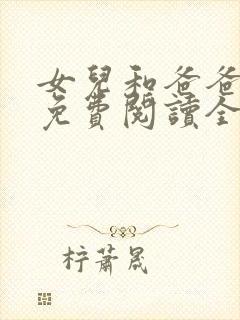 女兒和爸爸
免費閱讀全
柠蕭晟